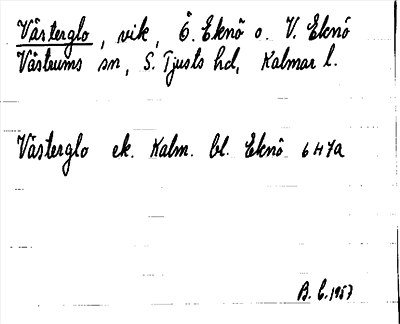 Västerglo, vik, Ö. Eknö o. V. Eknö
Västrums sn, S. Tjusts hd, Kalmar l.
Västerglo ek. Kalm. bl. Eknö 6H7a
B. E. 1957